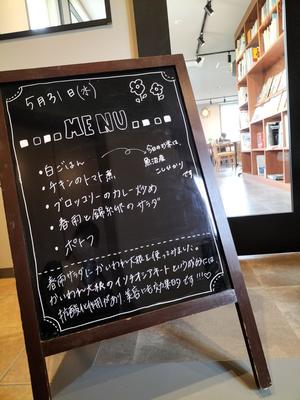 5月31日(水)
MENU
・白ごはん
今日のお米は、
魚沼産
こしひかり
です
・チキンのトマト煮
・ブロッコリーのカレー炒め
・春雨と錦糸卵のサラダ
・ポトフ
春雨サラダに かいわれ大根を使ってみました。
かいわれ大根のイソチオシアネートという成分には、
抗酸化作用があり、美容にも効果的です!!!♡